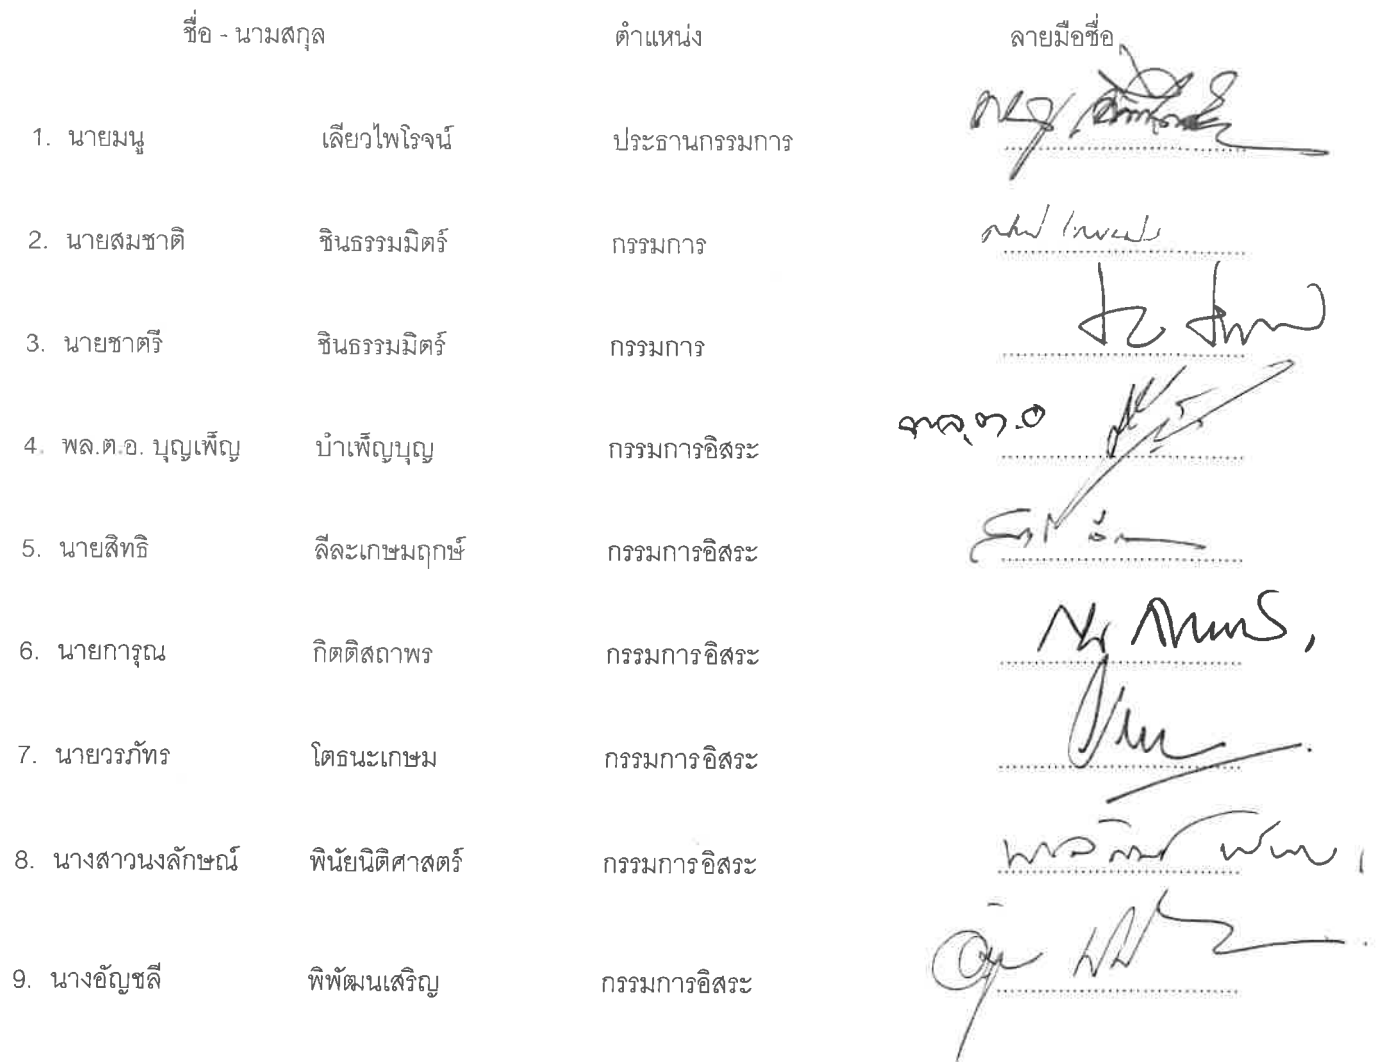 ชื่อ - นามสกุล ตำแหน่ง ลายมือชื่อ
1. นายมนู เลียวไพโรจน์ ประธานกรรมการ
2. นายสมชาติ ชินธรรมมิตร์ กรรมการ
3. นายชาตรี ชินธรรมมิตร์ กรรมการ
4. พล.ต.อ. บุญเพ็ญ บำเพ็ญบุญ กรรมการอิสระ พล.ต.อ
5. นายสิทธิ ลีละเกษมฤกษ์ กรรมการอิสระ
6. นายการุณ กิตติสถาพร กรรมการอิสระ
7. นายวรภัทร โตธนะเกษม กรรมการอิสระ
8. นางสาวนงลักษณ์ พินัยนิติศาสตร์ กรรมการอิสระ
9. นางอัญชลี พิพัฒนเสริญ กรรมการอิสระ